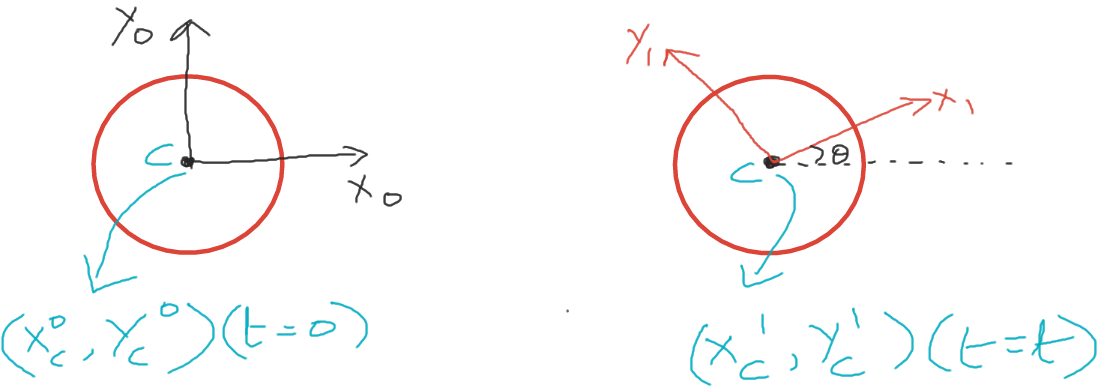 y₀
C
x₀
(x_c⁰, y_c⁰)(t=0)
y₁
x₁
θ
C
(x_c¹, y_c¹)(t=t)